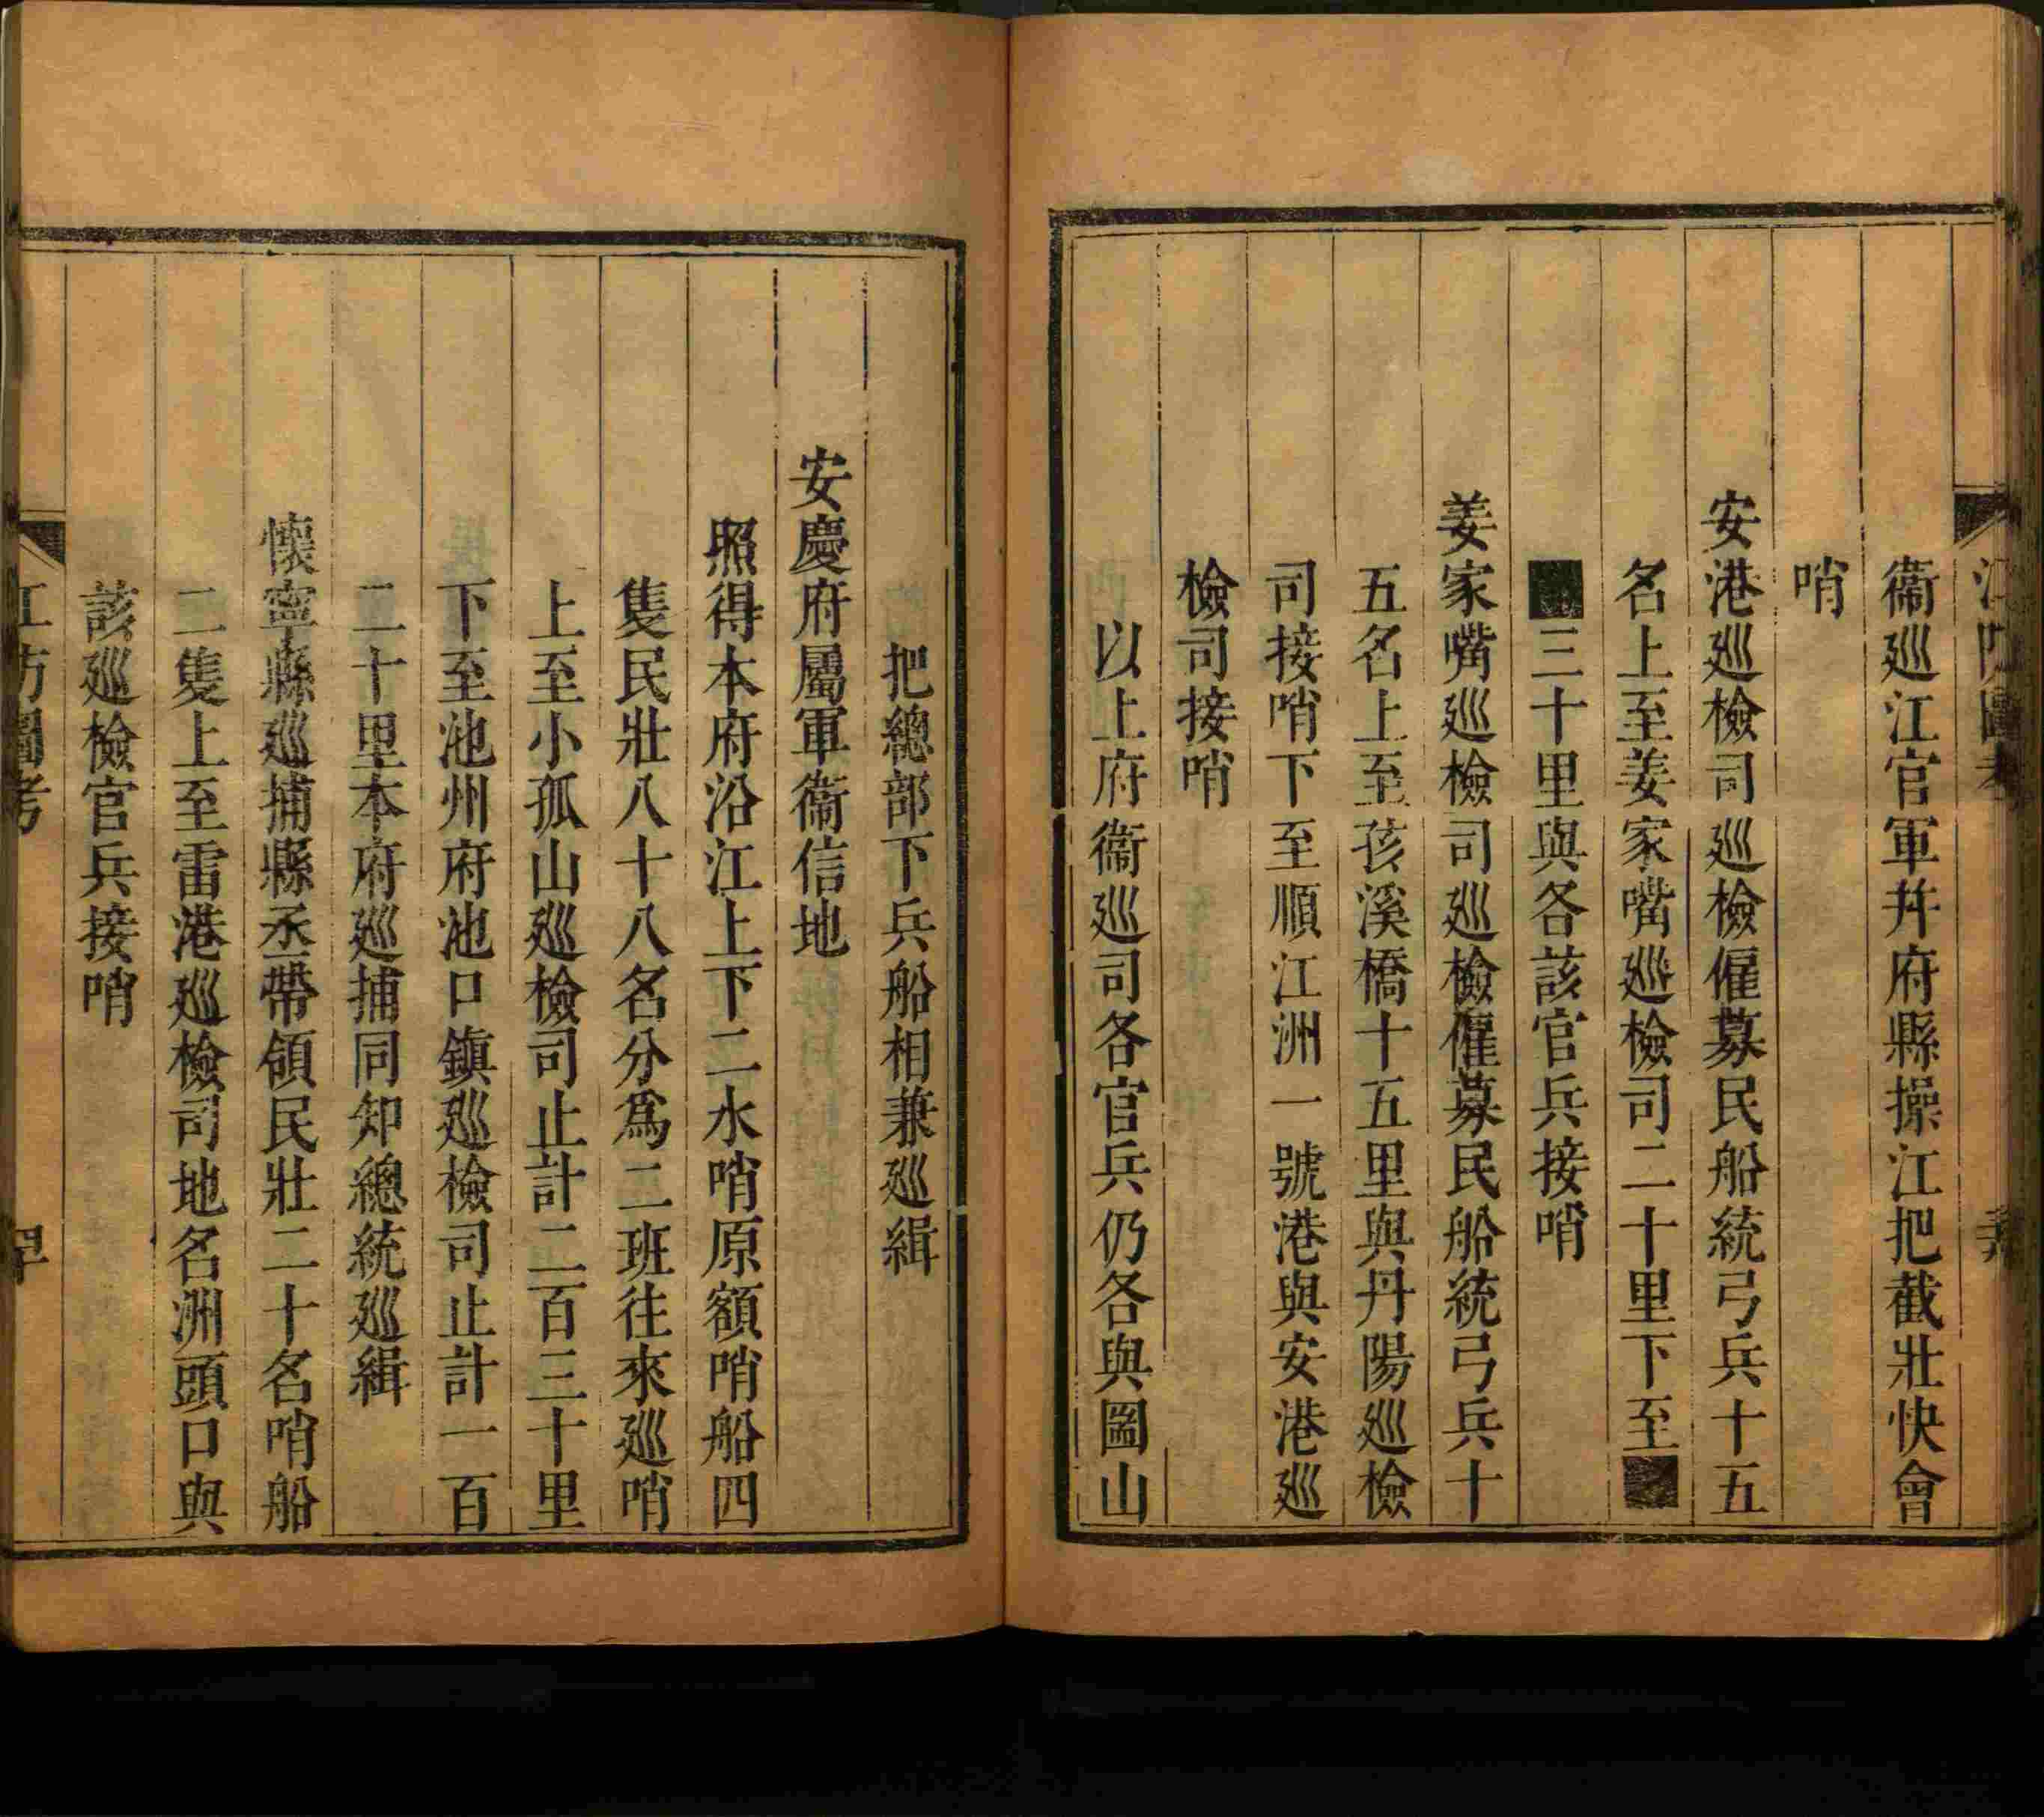 衞巡江官軍幷府縣操江把截壯快會
哨
安港巡檢司巡檢僱募民船統弓兵十五
名上至姜家嘴巡檢司二十里下至
三十里與各該官兵接哨
姜家嘴巡檢司巡檢僱募民船統弓兵十
五名上至孩溪橋十五里與丹陽巡檢
司接哨下至順江洲一號港與安港巡
檢司接哨
以上府衞巡司各官兵仍各與圌山
把總部下兵船相兼巡緝
安慶府屬軍衞信地
照得本府沿江上下二水哨原額哨船四
隻民壯八十八名分爲二班往來巡哨
上至小孤山巡檢司止計二百三十里
下至池州府池口鎮巡檢司止計一百
二十里本府巡捕同知總統巡緝
懷寧縣巡捕縣丞帶領民壯二十名哨船
二隻上至雷港巡檢司地名洲頭口與
該巡檢官兵接哨
江防圖考